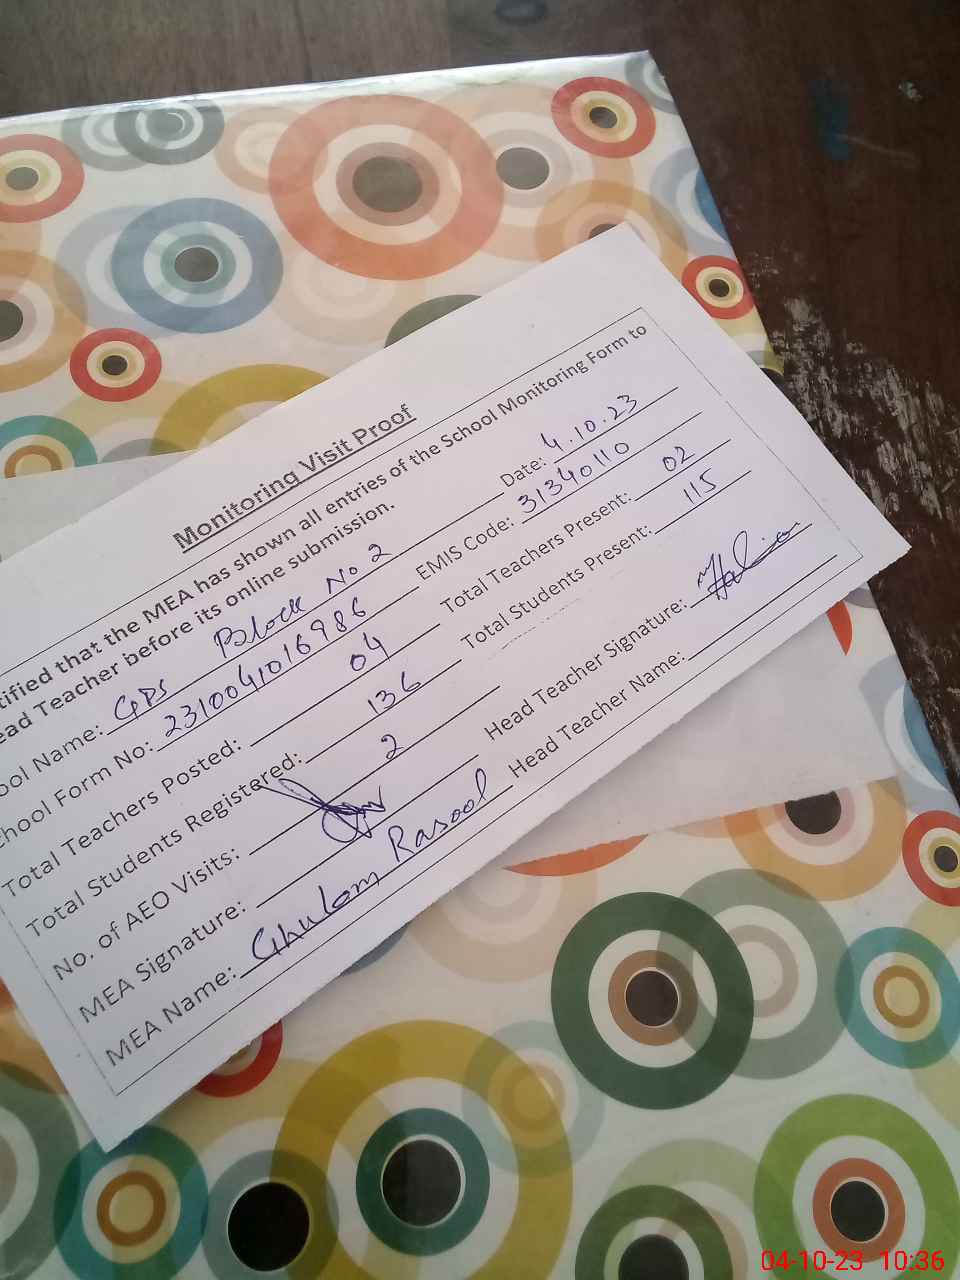 Monitoring Visit Proof
tified that the MEA has shown all entries of the School Monitoring Form to
ead Teacher before its online submission.
ool Name: GPS Block No 2 Date: 4.10.23
hool Form No: 2310041016986 EMIS Code: 31340110
Total Teachers Posted: 04 Total Teachers Present: 02
Total Students Registered: 136 Total Students Present: 115
No. of AEO Visits: 2
MEA Signature: Head Teacher Signature:
MEA Name: Ghulam Rasool Head Teacher Name:
04-10-23 10:36